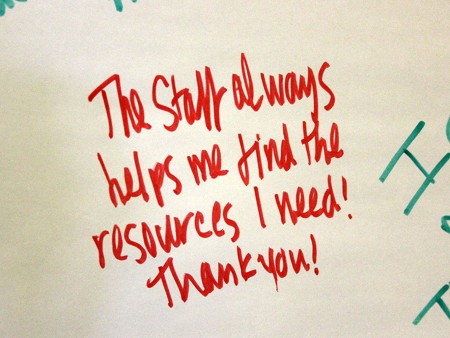 The Staff always
helps me find the
resources I need!
Thank you!